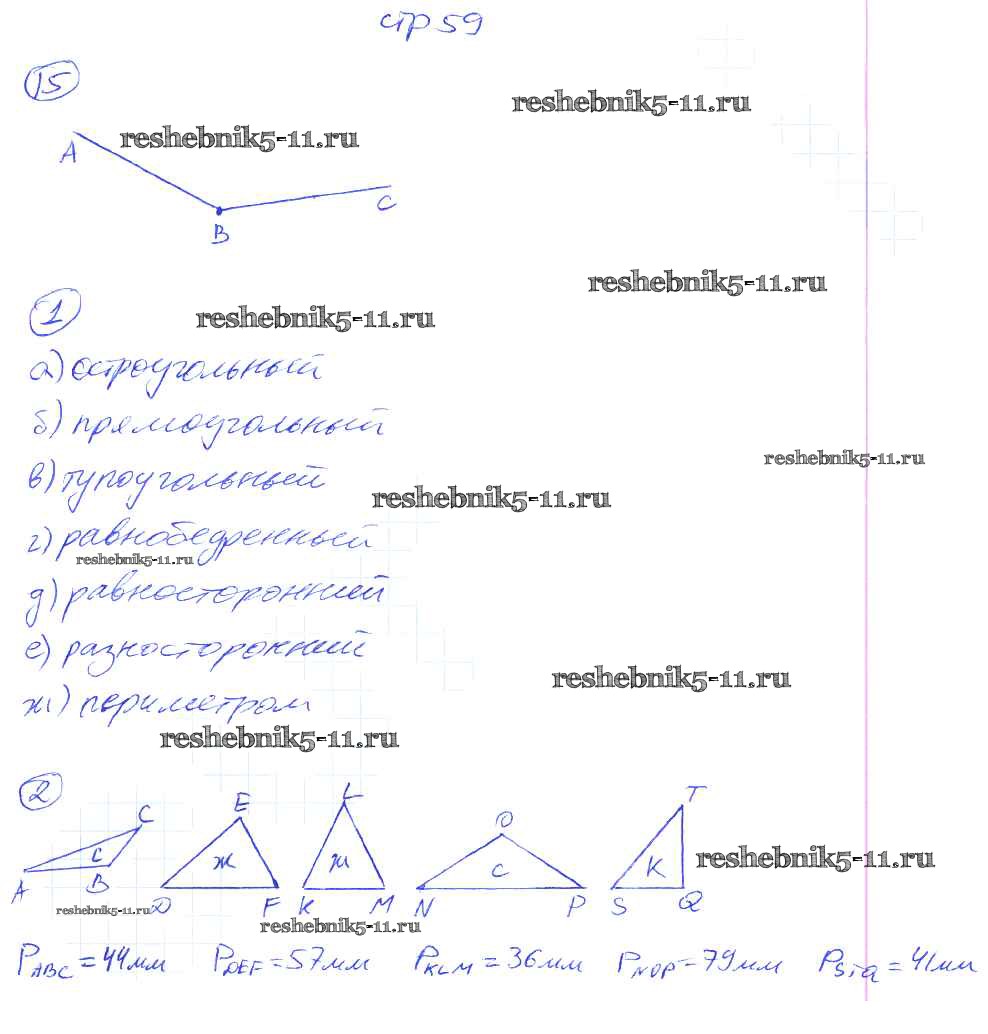 стр 59
15
reshebnik5-11.ru
reshebnik5-11.ru
A
B
C
reshebnik5-11.ru
1
reshebnik5-11.ru
а) остроугольный
б) прямоугольный
в) тупоугольный
reshebnik5-11.ru
reshebnik5-11.ru
г) равнобедренный
reshebnik5-11.ru
д) равносторонний
е) разносторонний
reshebnik5-11.ru
ж) периметром
reshebnik5-11.ru
2
A B C с
D E F ж
K L M ж
N O P с
S T Q к
reshebnik5-11.ru
reshebnik5-11.ru
reshebnik5-11.ru
P ABC = 44мм P DEF = 57мм P KLM = 36мм P NOP = 79мм P STQ = 41мм